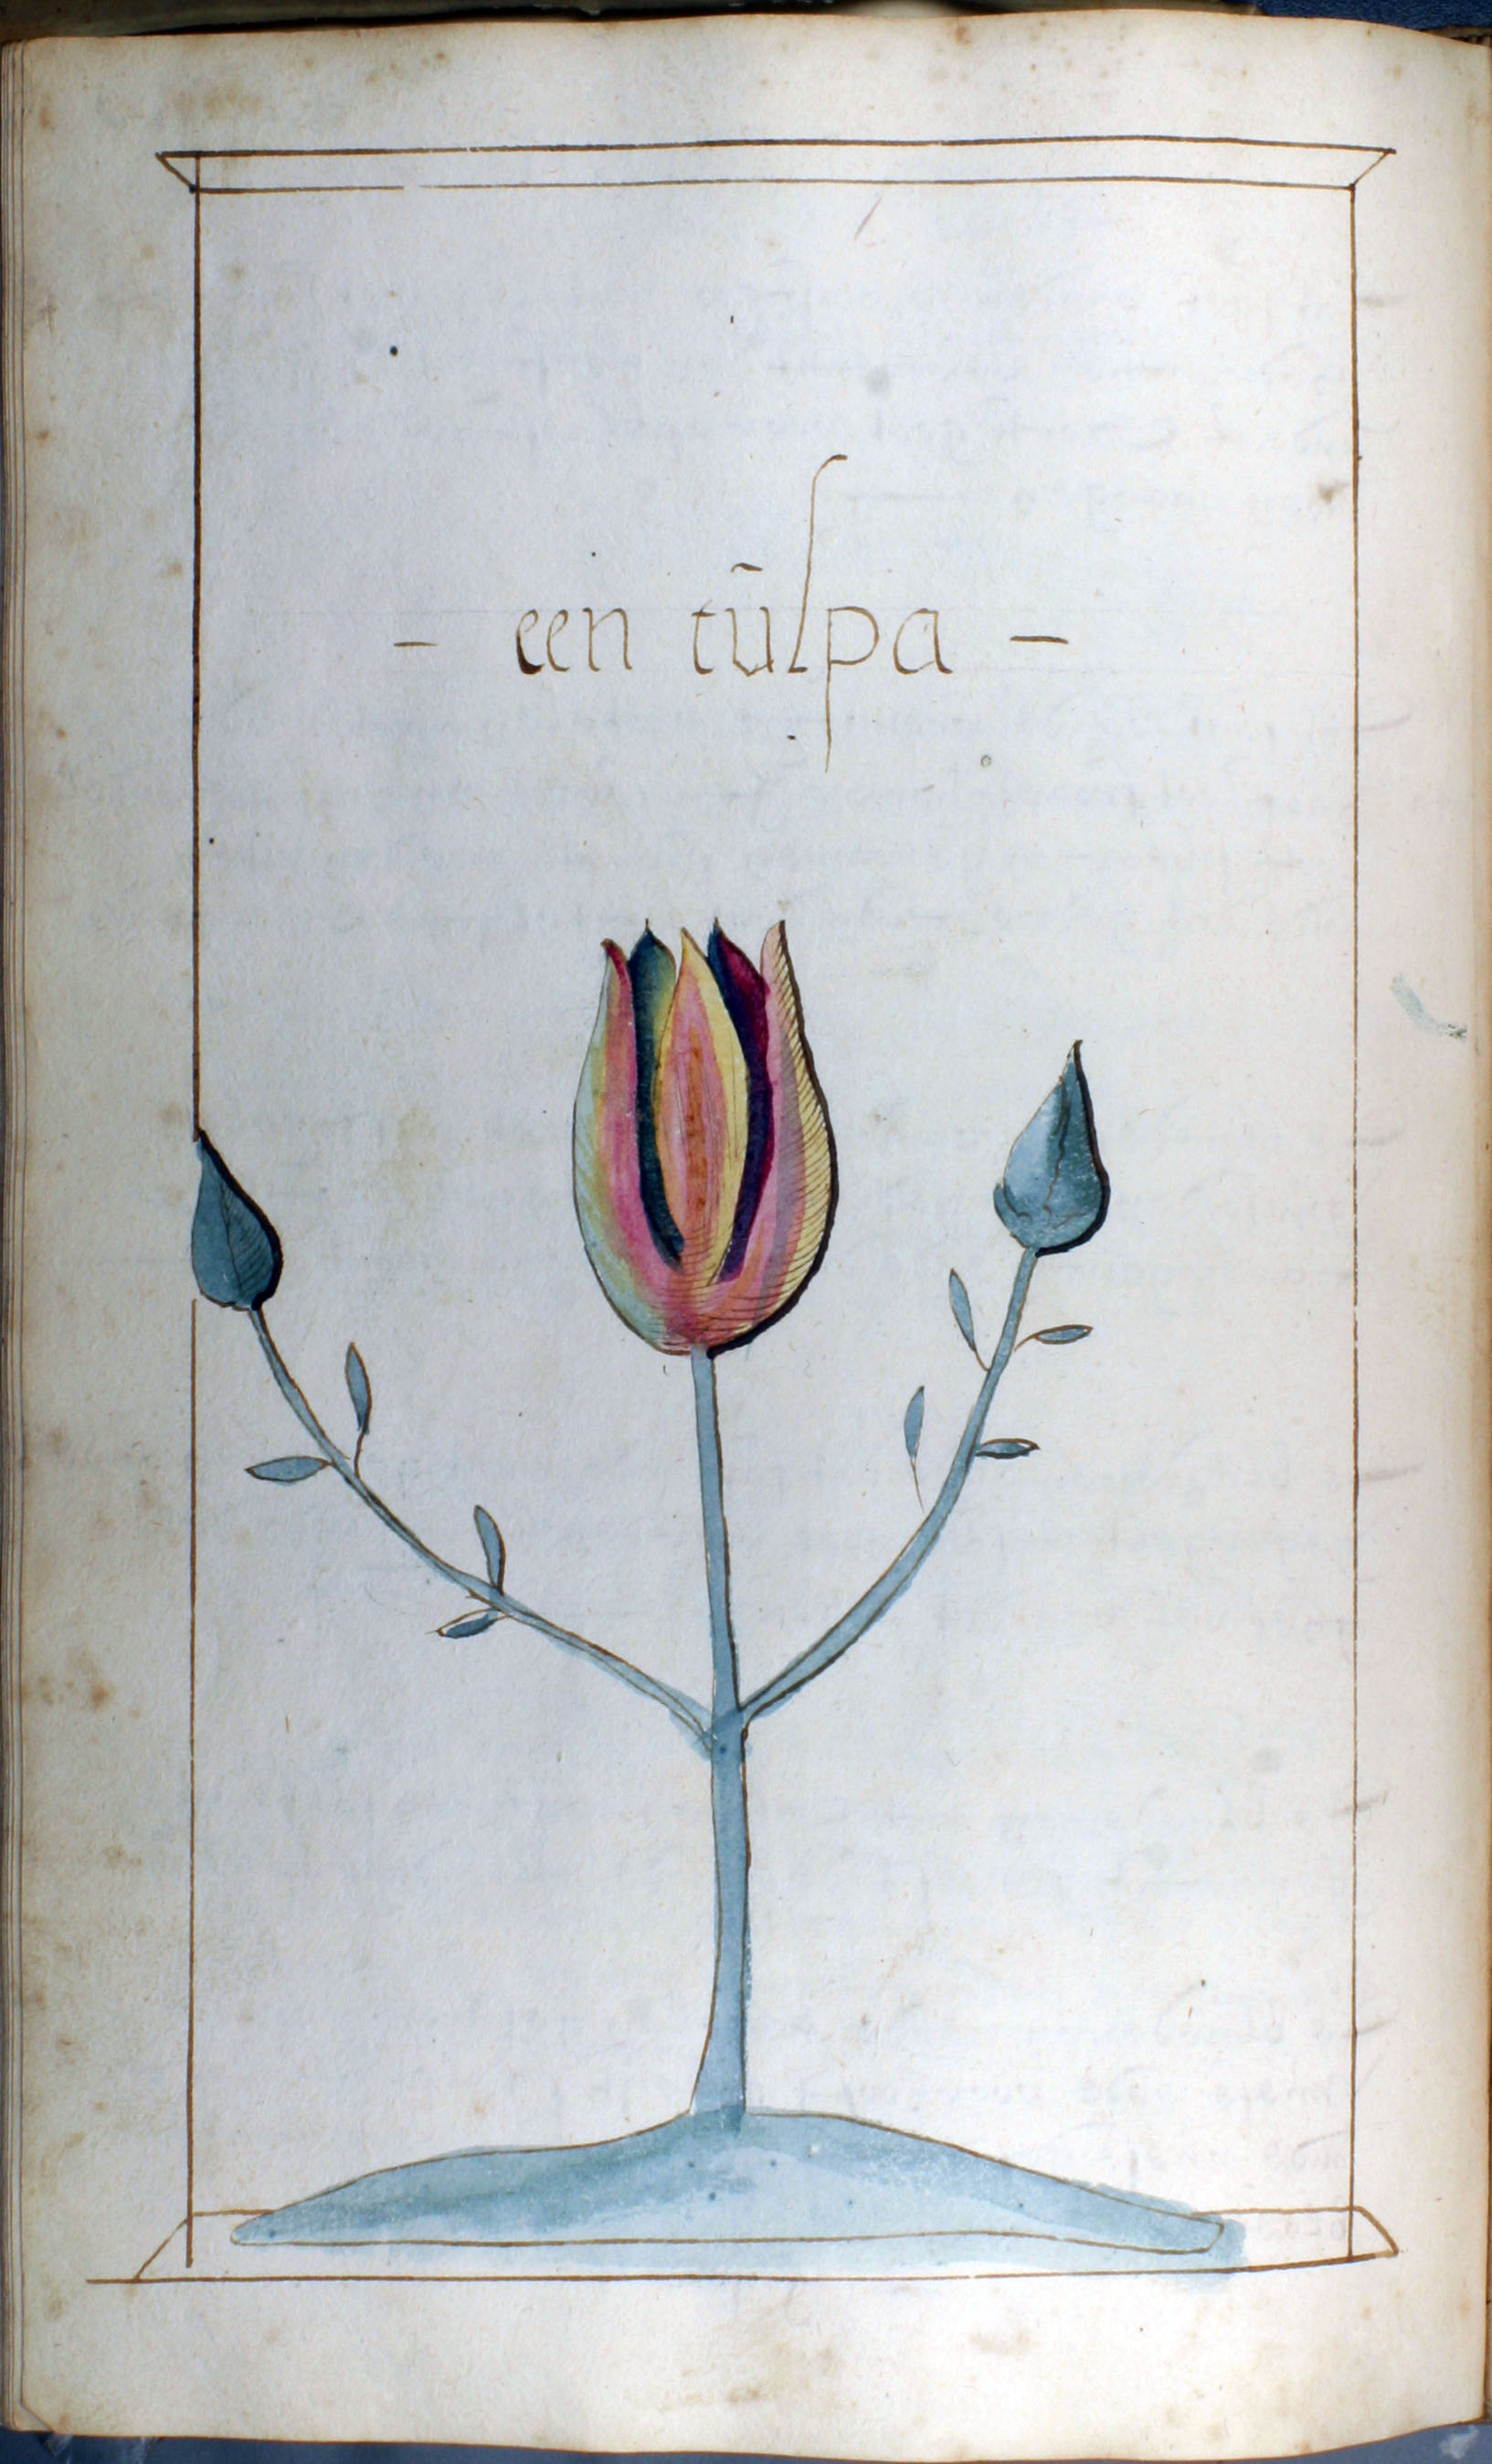 - een tūlpa -